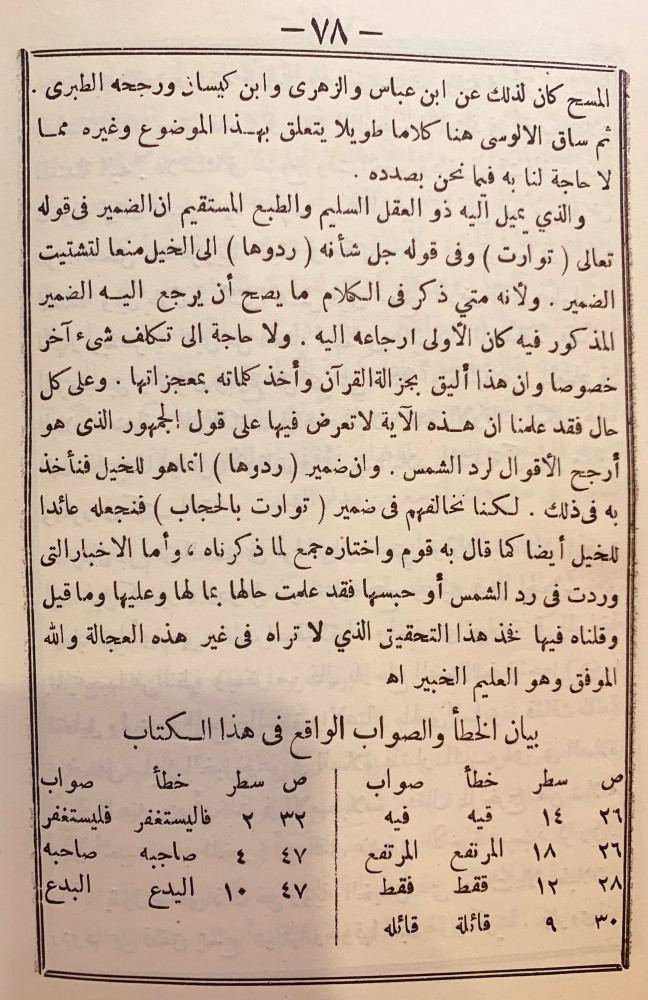 — ٧٨ —
المسح كان لذلك عن ابن عباس والزهرى وابن كيسان ورجحه الطبرى .
ثم ساق الالوسى هنا كلاما طويلا يتعلق بهـذا الموضوع وغيره ممـا
لا حاجة لنا به فيما نحن بصدده .
والذي يميل اليه ذو العقل السليم والطبع المستقيم ان الضمير فى قوله
تعالى ( توارت ) وفى قوله جل شأنه ( ردوها ) الى الخيل منعا لتشتيت
الضمير . ولأنه متي ذكر فى الكلام ما يصح أن يرجع اليـه الضمير
المذكور فيه كان الأولى ارجاعه اليه . ولا حاجة الى تكلف شىء آخر
خصوصا وان هذا أليق بجزالة القرآن وأخذ كلماته بمعجزاتها . وعلى كل
حال فقد علمنا ان هـذه الآية لا تعرض فيها على قول الجمهور الذى هو
أرجح الأقوال لرد الشمس . وان ضمير ( ردوها ) انما هو للخيل فنأخذ
به فى ذلك . لكننا نخالفهم فى ضمير ( توارت بالحجاب ) فنجعله عائدا
للخيل أيضا كما قال به قوم واختاره جمع لما ذكرناه ، وأما الاخبار التى
وردت فى رد الشمس أو حبسها فقد علمت حالها بما لها وعليها وما قيل
وقلناه فيها فخذ هذا التحقيق الذي لا تراه فى غير هذه العجالة والله
الموفق وهو العليم الخبير اه
بيان الخطأ والصواب الواقع فى هذا الـكتاب
ص سطر خطأ صواب
٢٦ ١٤ قيه فيه
٢٦ ١٨ المرنفع المرتفع
٢٨ ١٢ ققط فقط
٣٠ ٩ قائلة قائله
ص سطر خطأ صواب
٣٢ ٢ فاليستغفر فليستغفر
٤٧ ٤ صاجبه صاحبه
٤٧ ١٠ اليدع البدع